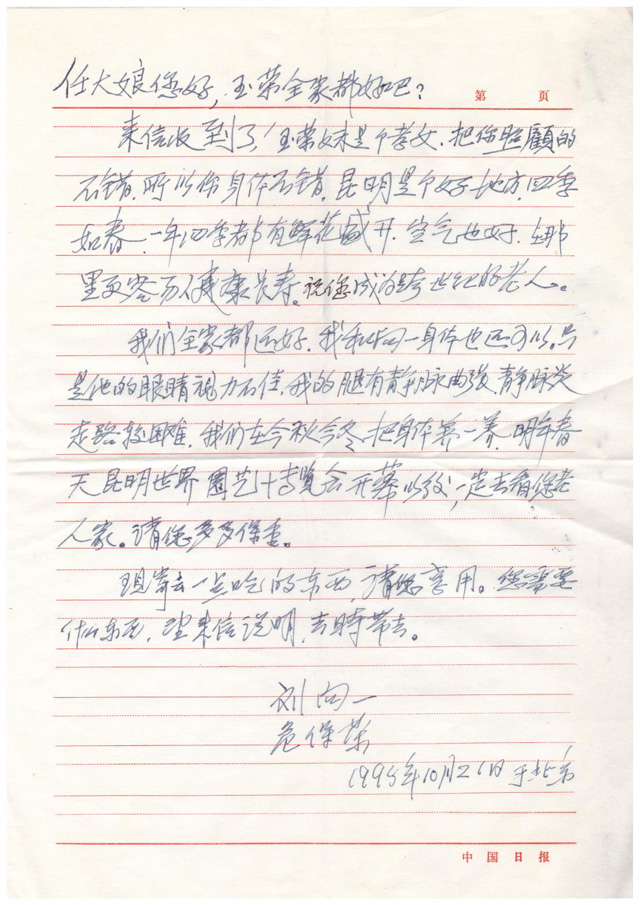 任大娘您好，玉荣全家都好吧？
第 页
来信收到了，玉荣妹是个孝女，把你照顧的
不错，所以你身体不错。昆明是个好地方，四季
如春，一年四季都有鲜花盛开，空气也好，在那
里更容易健康长寿。祝您成为跨世纪的老人。
我们全家都还好，我和向一身体也还可以。只
是他的眼睛视力不佳，我的腿有静脉曲张，静脉炎
走路较困难，我们在今秋今冬把身体养一养，明年春
天昆明世界园艺博览会开幕以后，一定去看您老
人家。请您多多保重。
现寄去一点吃的东西，请您享用。您需要
什么东西，望来信说明，去時带去。
刘向一
危保荣
10月26日于北京
中国日报